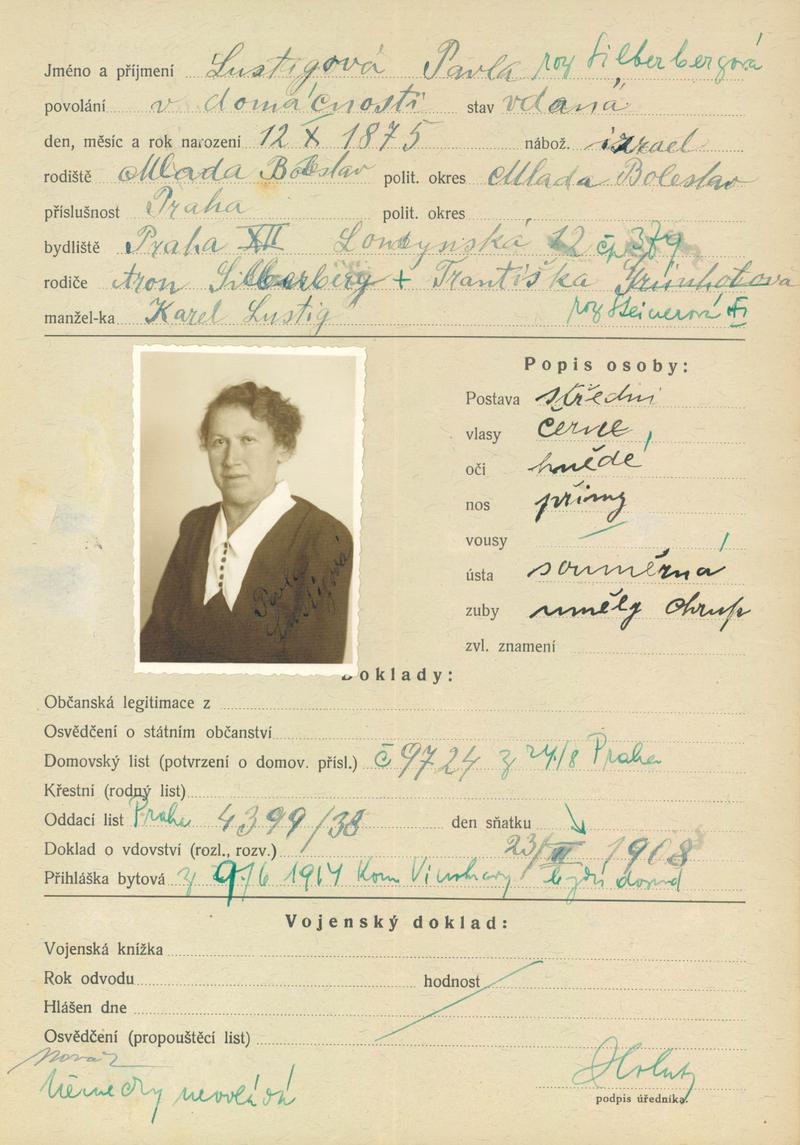 Jméno a příjmení Lustigová Pavla roz Silberbergová
povolání v domácnosti stav vdaná
den, měsíc a rok narození 12 X 1875 nábož. izrael
rodiště Mlada Boleslav polit. okres Mlada Boleslav
příslušnost Praha polit. okres
bydliště Praha XII Londynská 12 čp 379
rodiče Aron Silberberg + Františka Grünhutova
roz Steinerová
manžel-ka Karel Lustig
Popis osoby:
Postava střední
vlasy černé
oči hnědé
nos přímý
vousy
ústa souměrná
zuby umělý chrup
zvl. znamení
Pavla
Lustigová
Doklady:
Občanská legitimace z
Osvědčení o státním občanství
Domovský list (potvrzení o domov. přísl.) č 9724 z 24/8 Praha
Křestní (rodný list)
Oddací list Praha 4399/38 den sňatku
Doklad o vdovství (rozl., rozv.) 23/II 1908
Přihláška bytová z 9/6 1917 Kom Vinohrady bydlí dosud
Vojenský doklad:
Vojenská knížka
Rok odvodu hodnost
Hlášen dne
Osvědčení (propouštěcí list)
Německy neovládá
podpis úředníka.